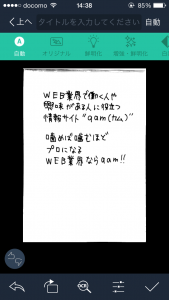 docomo 14:38 85%
上へ タイトルを入力してください 自動
自動 オリジナル 鮮明化 増強・鮮明化
WEB業界で働く人や
興味がある人に役立つ
情報サイト"qam(カム)"
噛めば噛むほど
プロになる
WEB業界ならqam!!
OCR